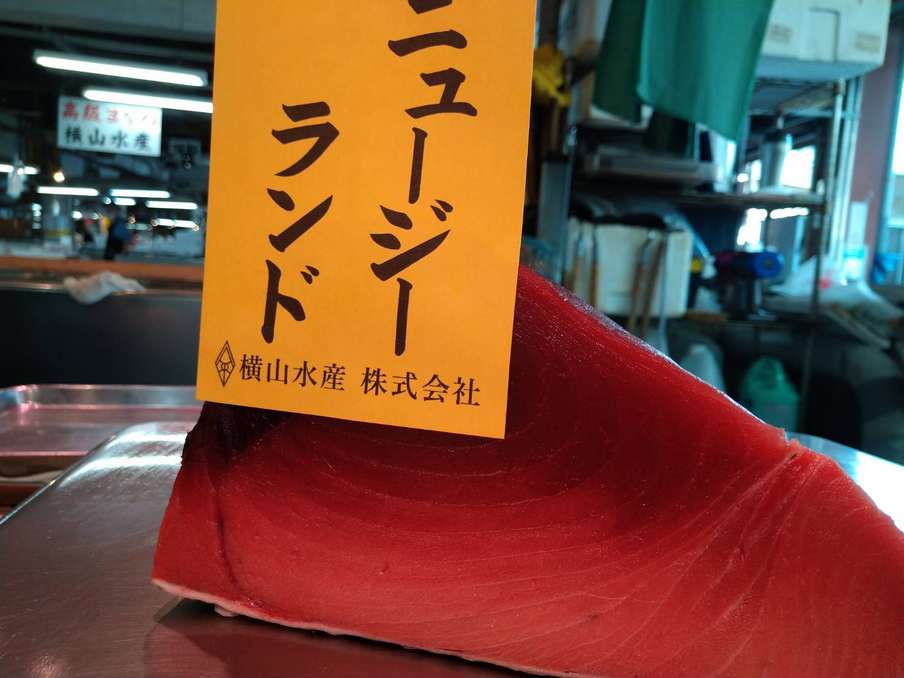 ニュージー
ランド
横山水産 株式会社
高級まぐろ
横山水産